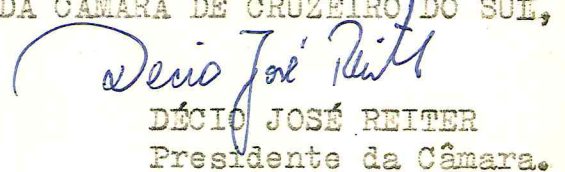 DA CÂMARA DE CRUZEIRO DO SUL,
Decio José Reiter
DÉCIO JOSÉ REITER
Presidente da Câmara.